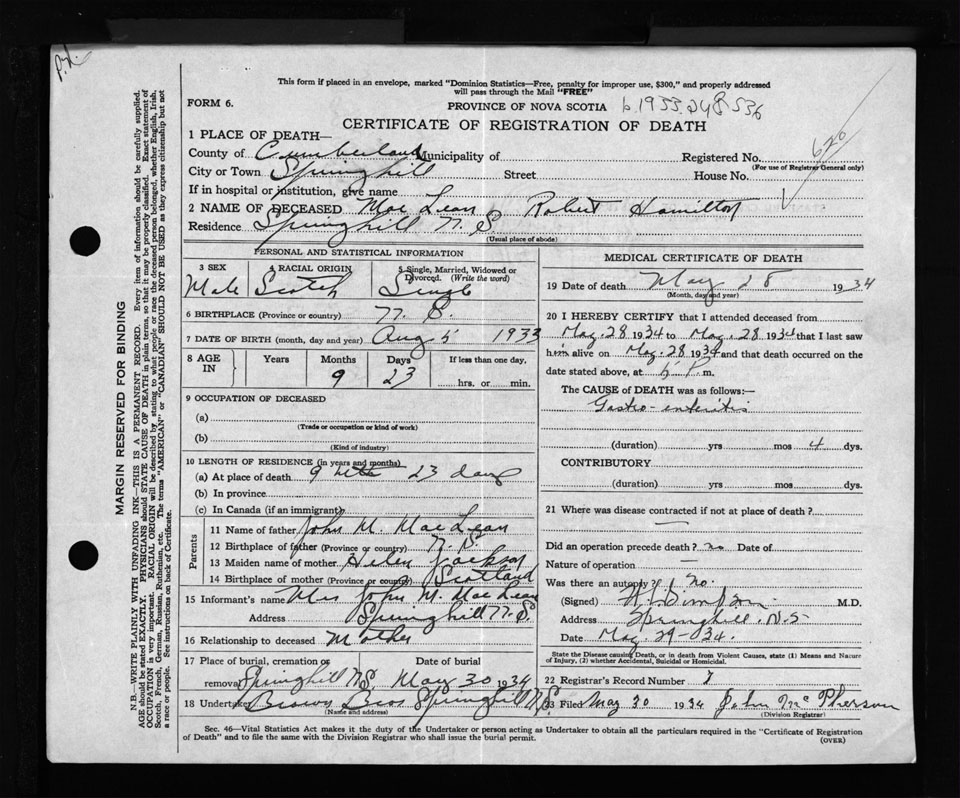 P.N.
This form if placed in an envelope, marked "Dominion Statistics—Free, penalty for improper use, $300," and properly addressed
will pass through the Mail "FREE"
FORM 6.
PROVINCE OF NOVA SCOTIA b. 1933. 248536
CERTIFICATE OF REGISTRATION OF DEATH
626
1 PLACE OF DEATH—
County of Cumberland Municipality of Registered No.
(For use of Registrar General only)
City or Town Springhill Street House No.
If in hospital or institution, give name
2 NAME OF DECEASED Mac Lean Robert Hamilton
Residence Springhill N. S.
(Usual place of abode)
PERSONAL AND STATISTICAL INFORMATION
3 SEX 4 RACIAL ORIGIN 5 Single, Married, Widowed or
Divorced. (Write the word)
Male Scotch Single
6 BIRTHPLACE (Province or country) N. S.
7 DATE OF BIRTH (month, day and year) Aug 5 1933
8 AGE IN Years Months Days If less than one day,
9 23 hrs. or min.
9 OCCUPATION OF DECEASED
(a)
(Trade or occupation or kind of work)
(b)
(Kind of industry)
10 LENGTH OF RESIDENCE (in years and months)
(a) At place of death 9 23 days
(b) In province
(c) In Canada (if an immigrant)
Parents
11 Name of father John M. Mac Lean
12 Birthplace of father (Province or country) N. S.
13 Maiden name of mother Helen Jackson
14 Birthplace of mother (Province or country) Scotland
15 Informant's name Mrs John M. Mac Lean
Address Springhill N. S.
16 Relationship to deceased Mother
17 Place of burial, cremation or Date of burial
removal Springhill N.S. May 30 1934
18 Undertaker Brown Bros Springhill N.S.
(Name and address)
MEDICAL CERTIFICATE OF DEATH
19 Date of death May 28 1934
(Month, day and year)
20 I HEREBY CERTIFY that I attended deceased from
May. 28 1934 to May. 28 1934 that I last saw
him alive on May. 28 1934 and that death occurred on the
date stated above, at 5 P. m.
The CAUSE of DEATH was as follows:—
Gastro-enteritis
(duration) yrs mos 4 dys.
CONTRIBUTORY
(duration) yrs mos dys.
21 Where was disease contracted if not at place of death?
—
Did an operation precede death? no Date of
Nature of operation —
Was there an autopsy? no.
(Signed) Simpson M.D.
Address Springhill. N.S.
Date May. 29-34.
State the Disease causing Death, or in death from Violent Causes, state (1) Means and Nature
of Injury, (2) whether Accidental, Suicidal or Homicidal.
22 Registrar's Record Number
23 Filed May 30 1934 John McPherson
(Division Registrar)
Sec. 46—Vital Statistics Act makes it the duty of the Undertaker or person acting as Undertaker to obtain all the particulars required in the "Certificate of Registration
of Death" and to file the same with the Division Registrar who shall issue the burial permit.
(OVER)
MARGIN RESERVED FOR BINDING
N.B.—WRITE PLAINLY WITH UNFADING INK—THIS IS A PERMANENT RECORD. Every item of information should be carefully supplied.
AGE should be stated EXACTLY. PHYSICIANS should STATE CAUSE OF DEATH in plain terms, so that it may be properly classified. Exact statement of
OCCUPATION is very important. RACIAL ORIGIN will be described by stating to what people or race the deceased person belonged, whether English, Irish,
Scotch, French, German, Russian, Ruthenian, etc. The terms "AMERICAN" or "CANADIAN" SHOULD NOT BE USED as they express citizenship but not
a race or people. See instructions on back of Certificate.